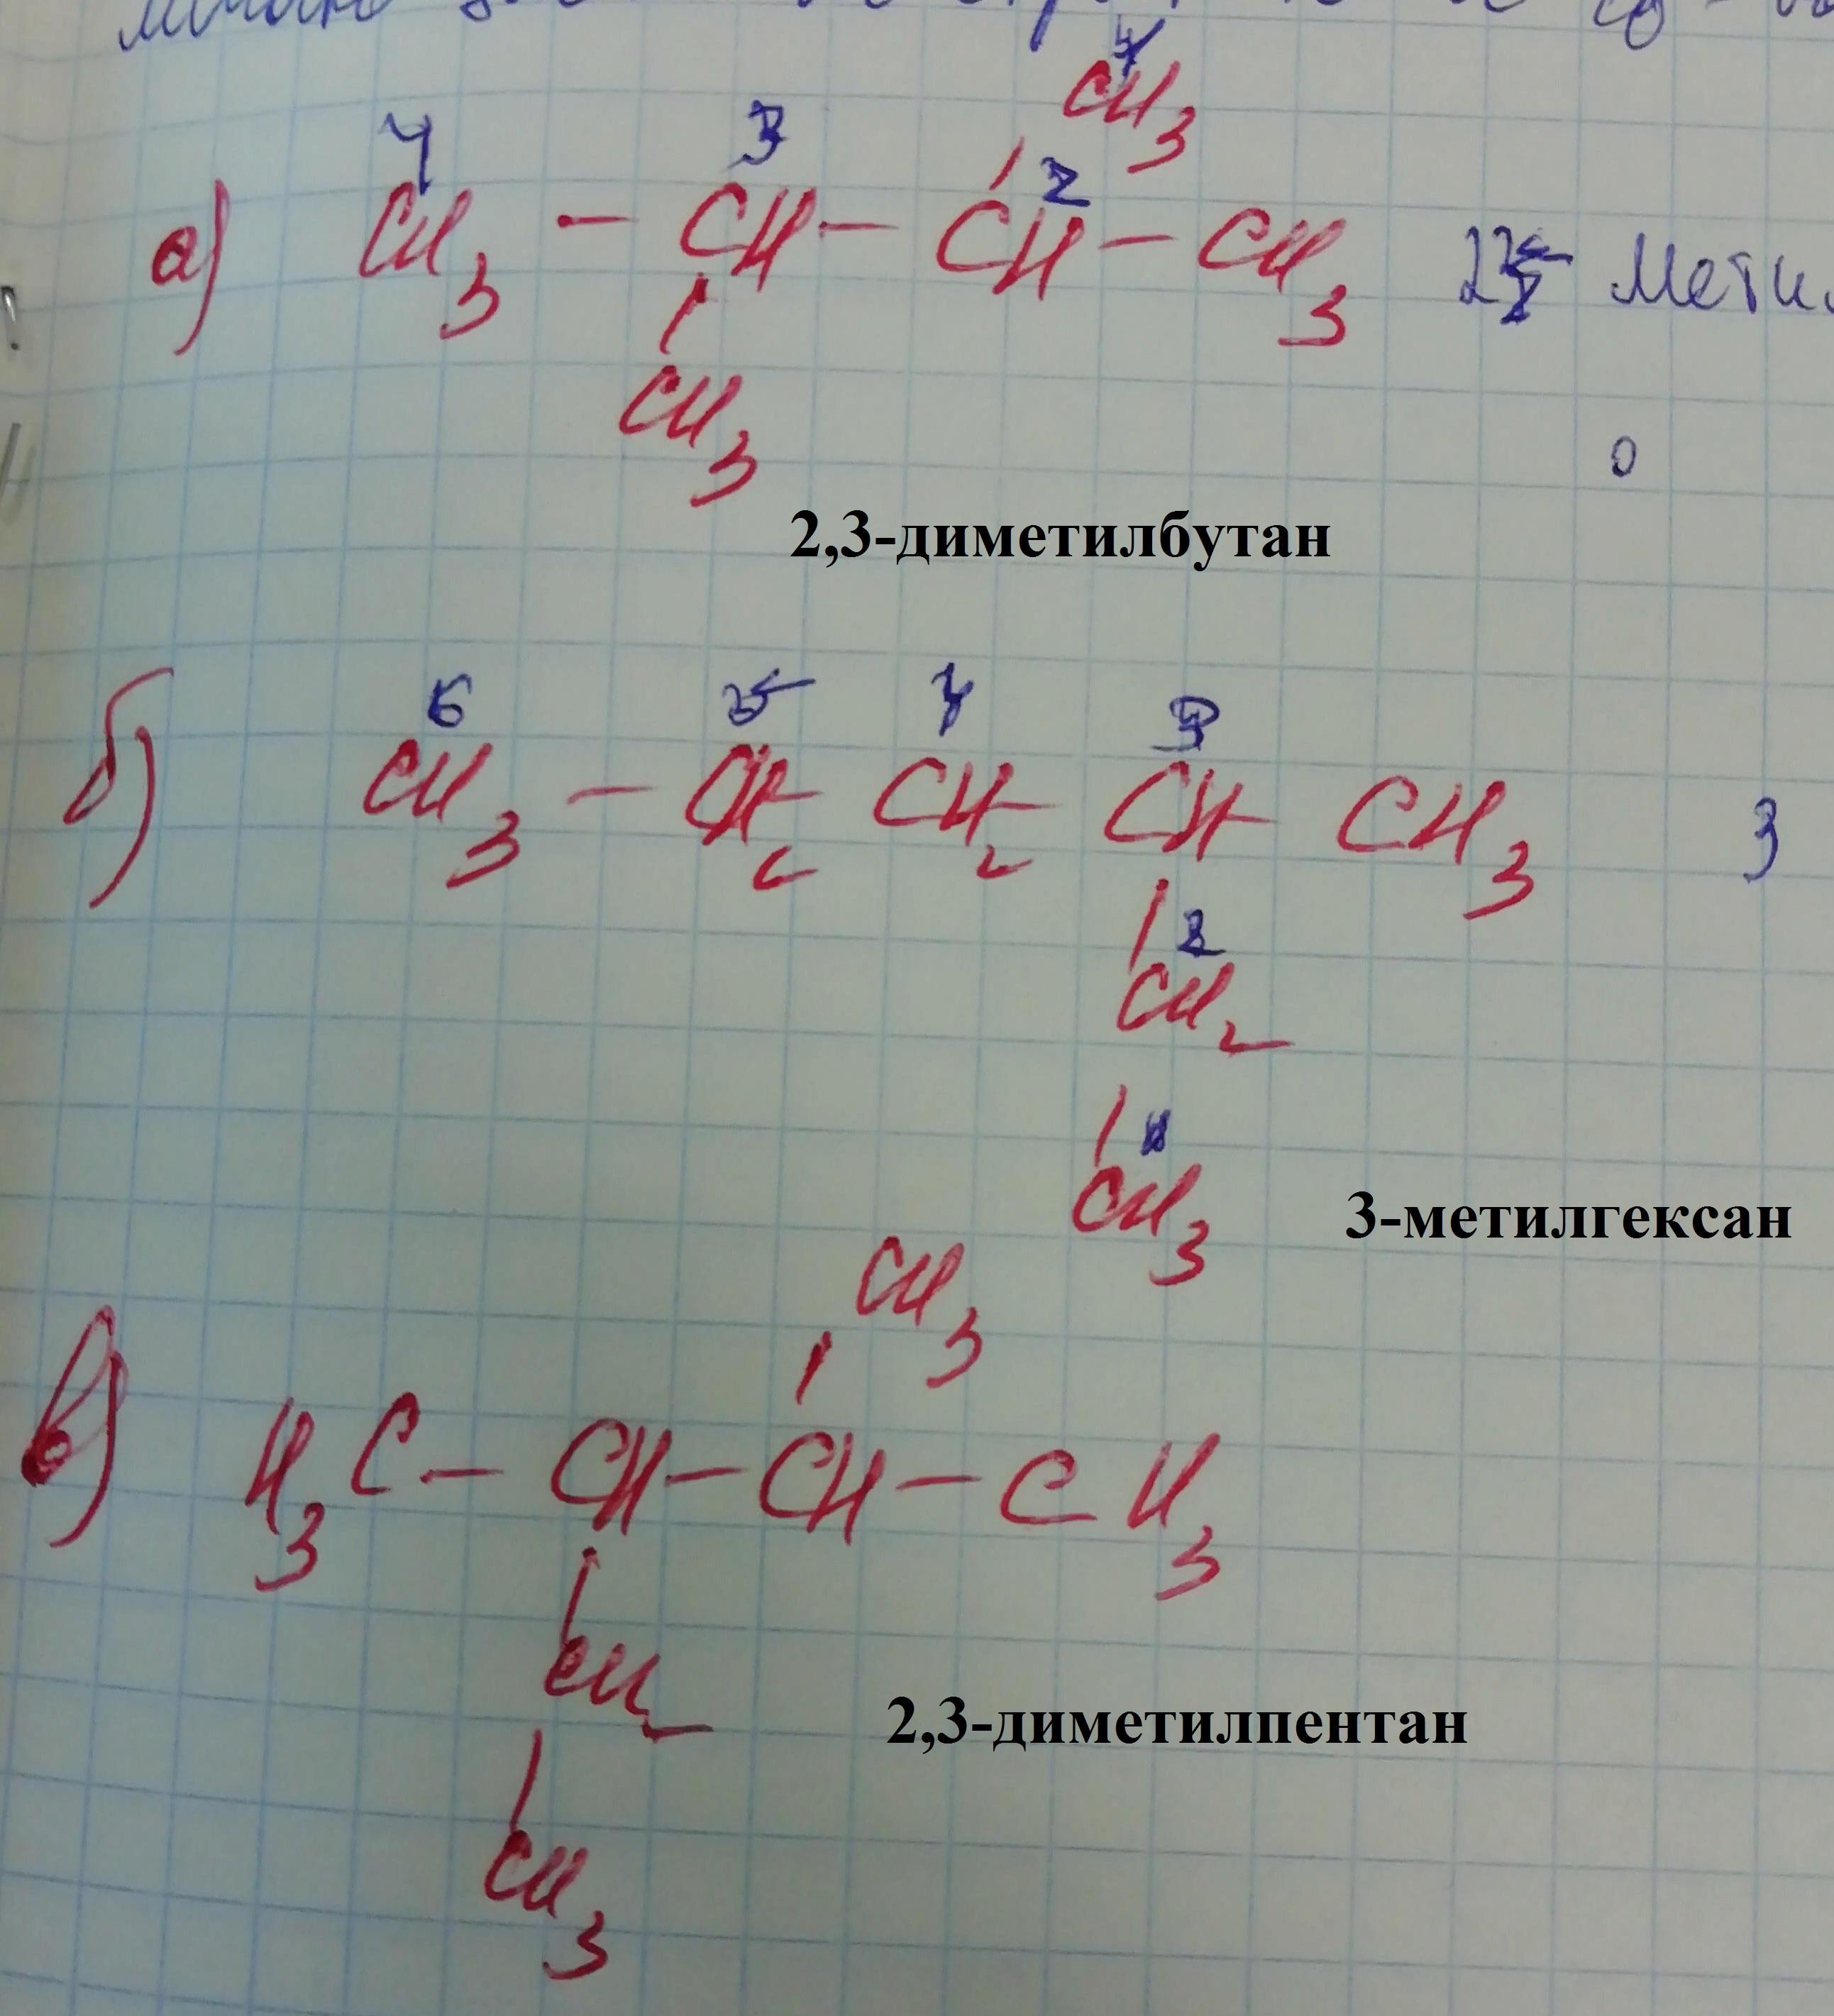 4 3 2
CH3
а) CH3 – CH – CH – CH3
CH3
2,3-диметилбутан
6 5 4 3
б) CH3 – CH2 – CH2 – CH – CH3 3
2
CH2
1
CH3
3-метилгексан
CH3
в) H3C – CH – CH – CH3
CH2
2,3-диметилпентан
CH3